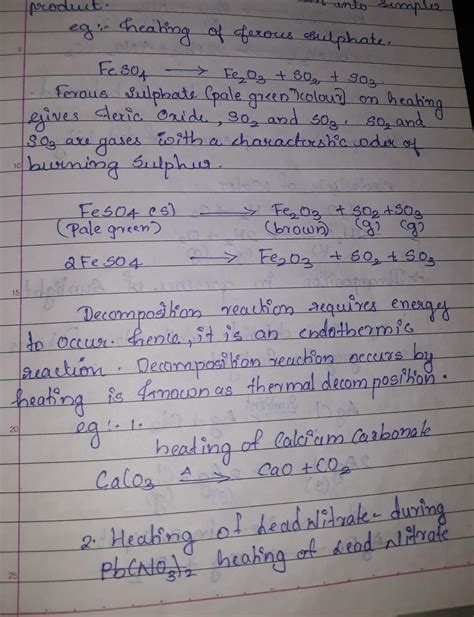 product. into simpler
eg:- heating of ferous sulphate.
5
FeSO4 → Fe2O3 + SO2 + SO3.
Ferous sulphate (pale green colour) on heating
gives feric Oxide, SO2 and SO3. SO2 and
SO3 are gases with a charactershic oder of
10
burning sulphur.
FeSO4 (s) → Fe2O3 + SO2 + SO3
(Pale green) (brown) (g) (g)
2FeSO4 → Fe2O3 + SO2 + SO3
15
Decomposition reaction requires energy
to occur. hence, it is an endothermic
reaction. Decomposition reaction occurs by
heating is known as thermal decomposition.
20
eg:- 1.
heating of Calcium Carbonate
CaCO3 Δ→ CaO + CO2
2. Heating of Lead Nitrate - during
Pb(NO3)2 heating of Lead Nitrate
25